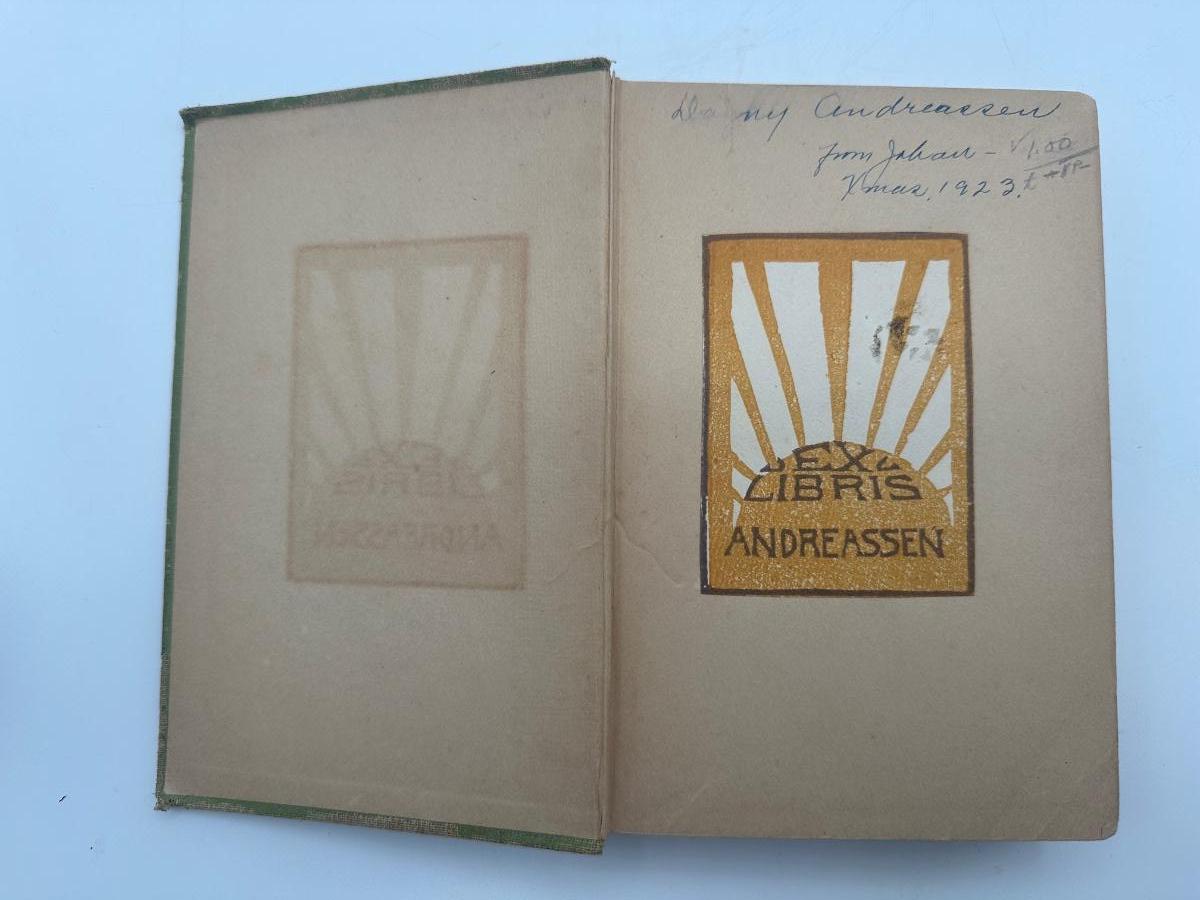 Dagny Andreassen
from Johan -
Xmas, 1923.
1.00
EX
LIBRIS
ANDREASSEN